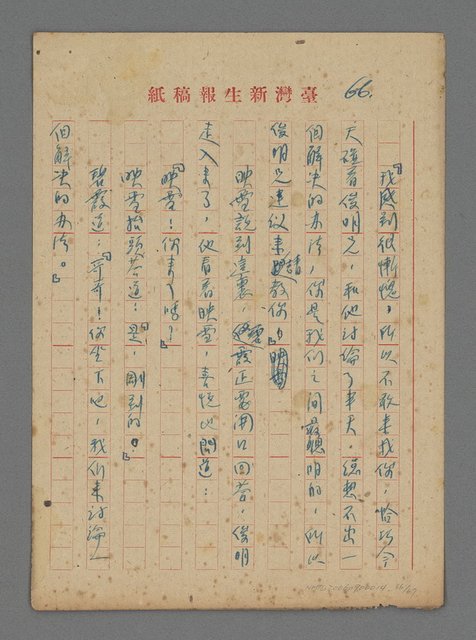 臺灣新生報稿紙
66.
「我感到很慚愧，所以不敢來找你，恰巧今
天碰着俊明兄，和他討論了半天，總想不出一
個解決的辦法，你是我們之間最聰明的，所以
俊明兄建议来請教你。」
映雪說到這裏，碧霞正要開口回答，俊明
走入來了，他看着映雪，喜悅地問道：
「映雪！你來了嗎？」
映雪抬頭答道：「是，剛到的。」
碧霞道：「哥哥！你坐下吧，我們來討論一
個解決的办法。」